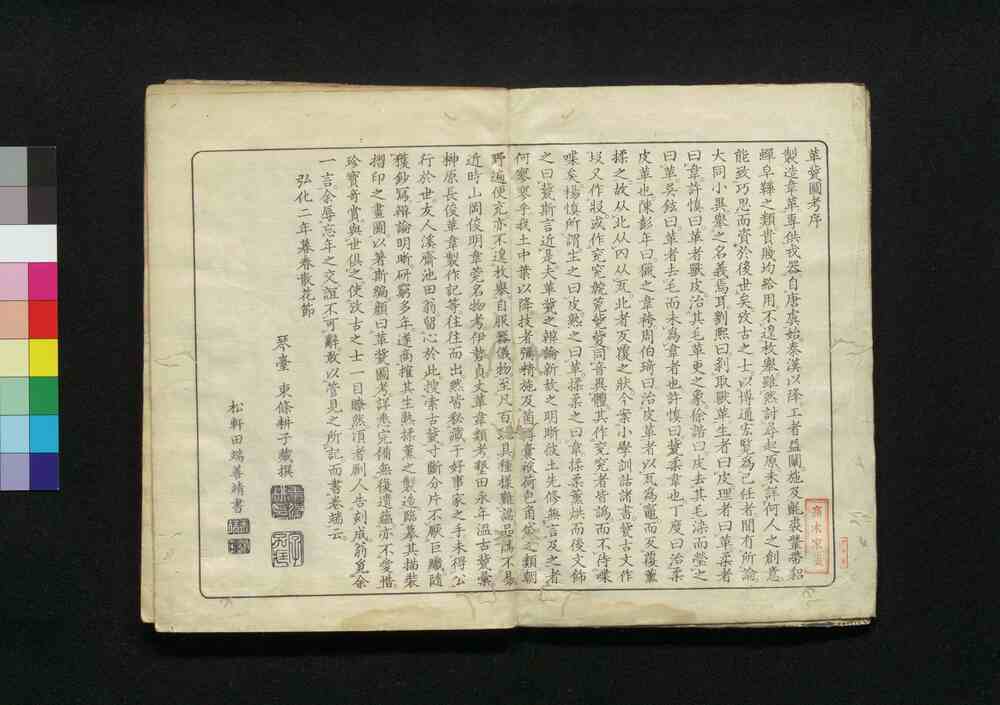 革㲉圖考序
製造韋革專供我器自唐虞始秦漢以降工者益闡施及氈裘鞶帶
鞾之類貴賤均給用不遑枚舉雖然討尋起原未詳何人之創意
能致巧思而資於後世矣攷古之士以博通宏覧為己任者間有所論
大同小異舉之名義焉耳劉熙曰剥取獸革生者曰皮理者曰革柔者
曰韋許慎曰革者獸皮治其毛革更之象徐鍇曰皮去其毛染而瑩之
曰革吳鉉曰革者去毛而未為韋者也許慎曰㲉柔韋也丁度曰治柔
皮革也陳彭年曰獵之韋袴周伯琦曰治皮革者以瓦為竈而反覆薫
揉之故从北从四从瓦北者反覆之狀今案小學訓詁諸書㲉古文作
又作或作同音異體其作者皆譌而不待喋
喋矣楊慎所謂生之曰皮熟之曰革揉柔之曰韋揉柔薫烘而後文飾
之曰㲉斯言近是夫革㲉之辨論新故之明晰彼土先修無言及之者
何寥寥乎我土中葉以降技者彌精施及箇囊袱荷包甬盛之類朝
野遍便充亦不遑枚舉自服器儀物至凡百具種樣難認品隲不易
近時山岡俊明韋莞名物考伊勢貞丈革韋類考墾田永年溫古㲉彙
榊原長俊革韋製作記等往往而出然皆秘藏于好事家之手未得公
行於世友人溪齋池田翁留心於此捜索古㲉寸斷分片不厭巨纖隨
獲鈔冩辯論明晰研窮多年遂商搉其生熟揉薫之製造臨摹其描裝
摺印之畫圖以著斯編顏曰革㲉圖考詳悉完備無復遺蘊亦不愛惜
珍寶奇賞與世俱之使攷古之士一目瞭然頃者剞人告刻成翁覓余
一言余辱忘年之交誼不可辭敢以管見之所記而書卷端云
弘化二年暮春散花節
琴臺 東條耕子藏撰
松軒田端善靖書
高木家藏